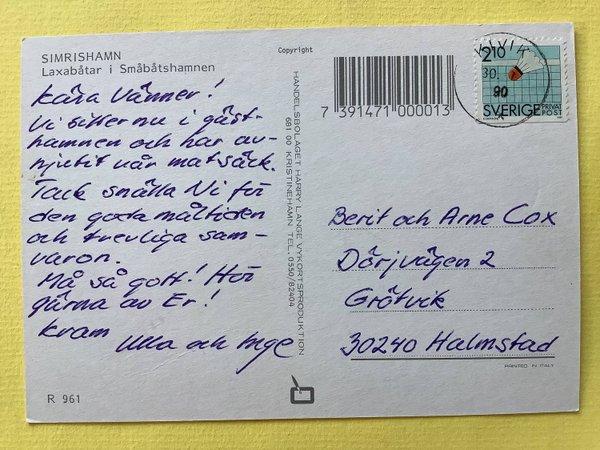 SIMRISHAMN
Laxabåtar i Småbåtshamnen
Kära Vänner!
Vi sitter nu i gäst-
hamnen och har av-
njutit vår matsäck.
Tack snälla Ni för
den goda måltiden
och trevliga sam-
varon.
Må så gott! Hör
gärna av Er!
Kram
Ulla och Inge
R 961
Copyright
7 391471 000013
HANDELSBOLAGET HARRY LANGE VYKORTSPRODUKTION
681 00 KRISTINEHAMN TEL. 0550/82404
2.10
SVERIGE
PRIVAT
POST
30.
90
Berit och Arne Cox
Dörjvägen 2
Grötvik
30240 Halmstad
PRINTED IN ITALY